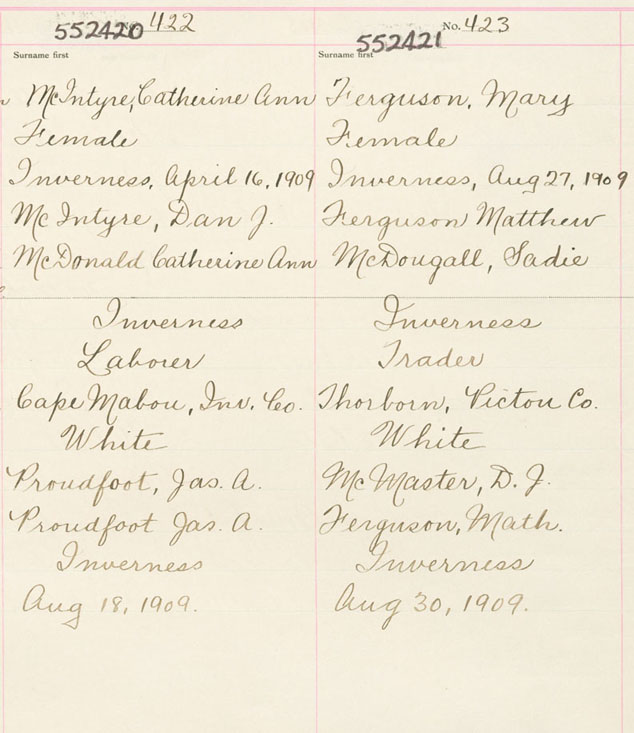 552420 No. 422
Surname first
McIntyre, Catherine Ann
Female
Inverness, April 16, 1909
McIntyre, Dan J.
McDonald Catherine Ann
Inverness
Laborer
Cape Mabou, Inv. Co.
White
Proudfoot, Jas. A.
Proudfoot Jas. A.
Inverness
Aug 18, 1909.
No. 423
552421
Surname first
Ferguson, Mary
Female
Inverness, Aug 27, 1909
Ferguson Matthew
McDougall, Sadie
Inverness
Trader
Thorborn, Pictou Co.
White
McMaster, D. J.
Ferguson, Math.
Inverness
Aug 30, 1909.